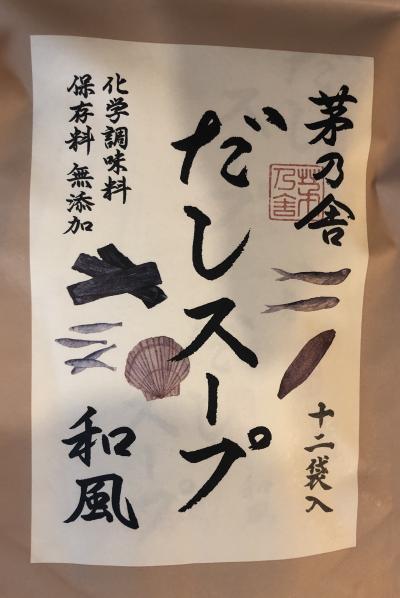 茅乃舎
茅乃舎
十二袋入
だしスープ
化学調味料
保存料 無添加
和風